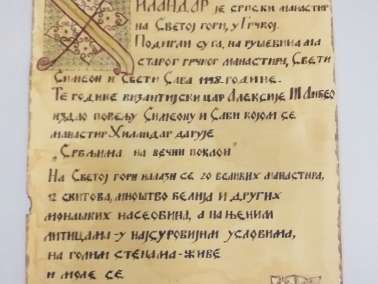 Хиландар је српски манастир
на Светој гори, у Грчкој.
Подигли су га, на рушевинама
старог грчког манастира, Свети
Симеон и Свети Сава 1198. године.
Те године византијски цар Алексије III Анђео
издао повељу Симеону и Сави којом се
манастир Хиландар дарује
„Србљима на вечни поклон"
На Светој гори налази се 20 великих манастира,
12 скитова, мноштво келија и других
монашких насеобина, а на њеним
литицама-у најсуровијим условима,
на голим стенама-живе
и моле се